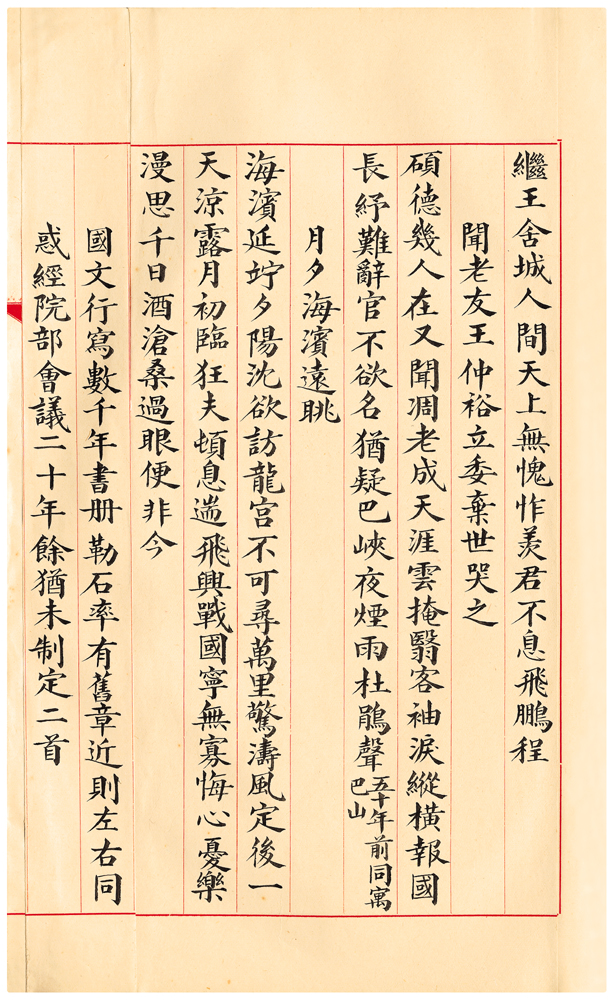 繼王舍城人間天上無愧怍羨君不息飛鵬程
聞老友王仲裕立委棄世哭之
碩德幾人在又聞凋老成天涯雲掩翳客袖淚縱橫報國
長紓難辭官不欲名猶疑巴峽夜煙雨杜鵑聲五十年前同寓
巴山
月夕海濱遠眺
海濱延竚夕陽沈欲訪龍宮不可尋萬里驚濤風定後一
天涼露月初臨狂夫頓息遄飛興戰國寧無寡悔心憂樂
漫思千日酒滄桑過眼便非今
國文行寫數千年書册勒石率有舊章近則左右同
惑經院部會議二十年餘猶未制定二首